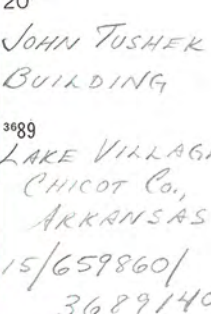 20
JOHN TUSHEK
BUILDING
3689
LAKE VILLAGE
CHICOT Co.,
ARKANSAS
15/659860/
368914